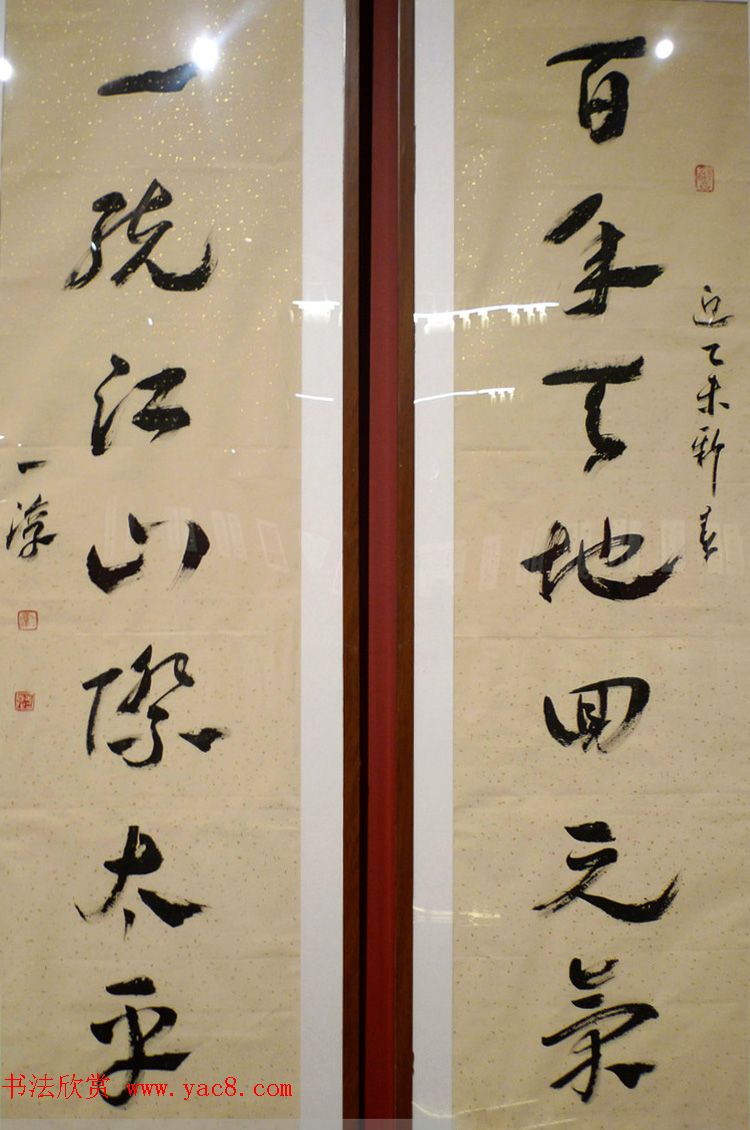 百年天地回元氣
迎乙未新春
一統江山際太平
一浮
书法欣赏 www.yac8.com